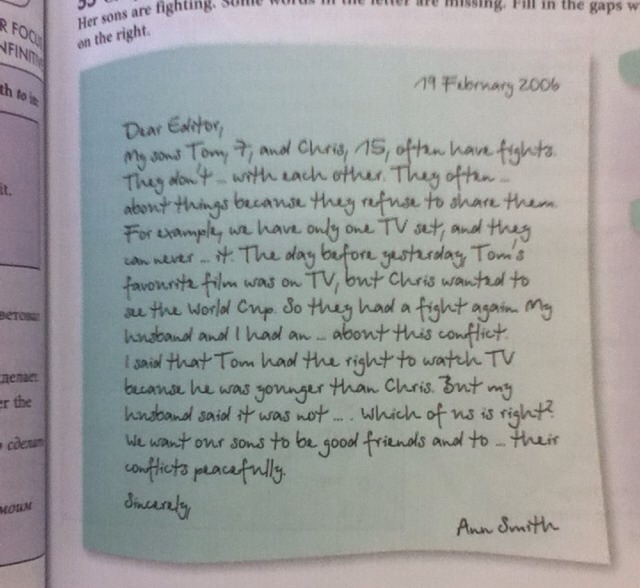 Her sons are fighting. Some words in the letter are missing. Fill in the gaps w
on the right.
R FOCU
NFINITI
th to is
it.
19 February 2006
Dear Editor,
My sons Tom, 7, and Chris, 15, often have fights.
They don't ... with each other. They often ...
about things because they refuse to share them.
For example, we have only one TV set, and they
can never ... it. The day before yesterday, Tom's
favourite film was on TV, but Chris wanted to
see the World Cup. So they had a fight again. My
husband and I had an ... about this conflict.
I said that Tom had the right to watch TV
because he was younger than Chris. But my
husband said it was not ... . Which of us is right?
We want our sons to be good friends and to ... their
conflicts peacefully.
Sincerely,
Ann Smith
er the